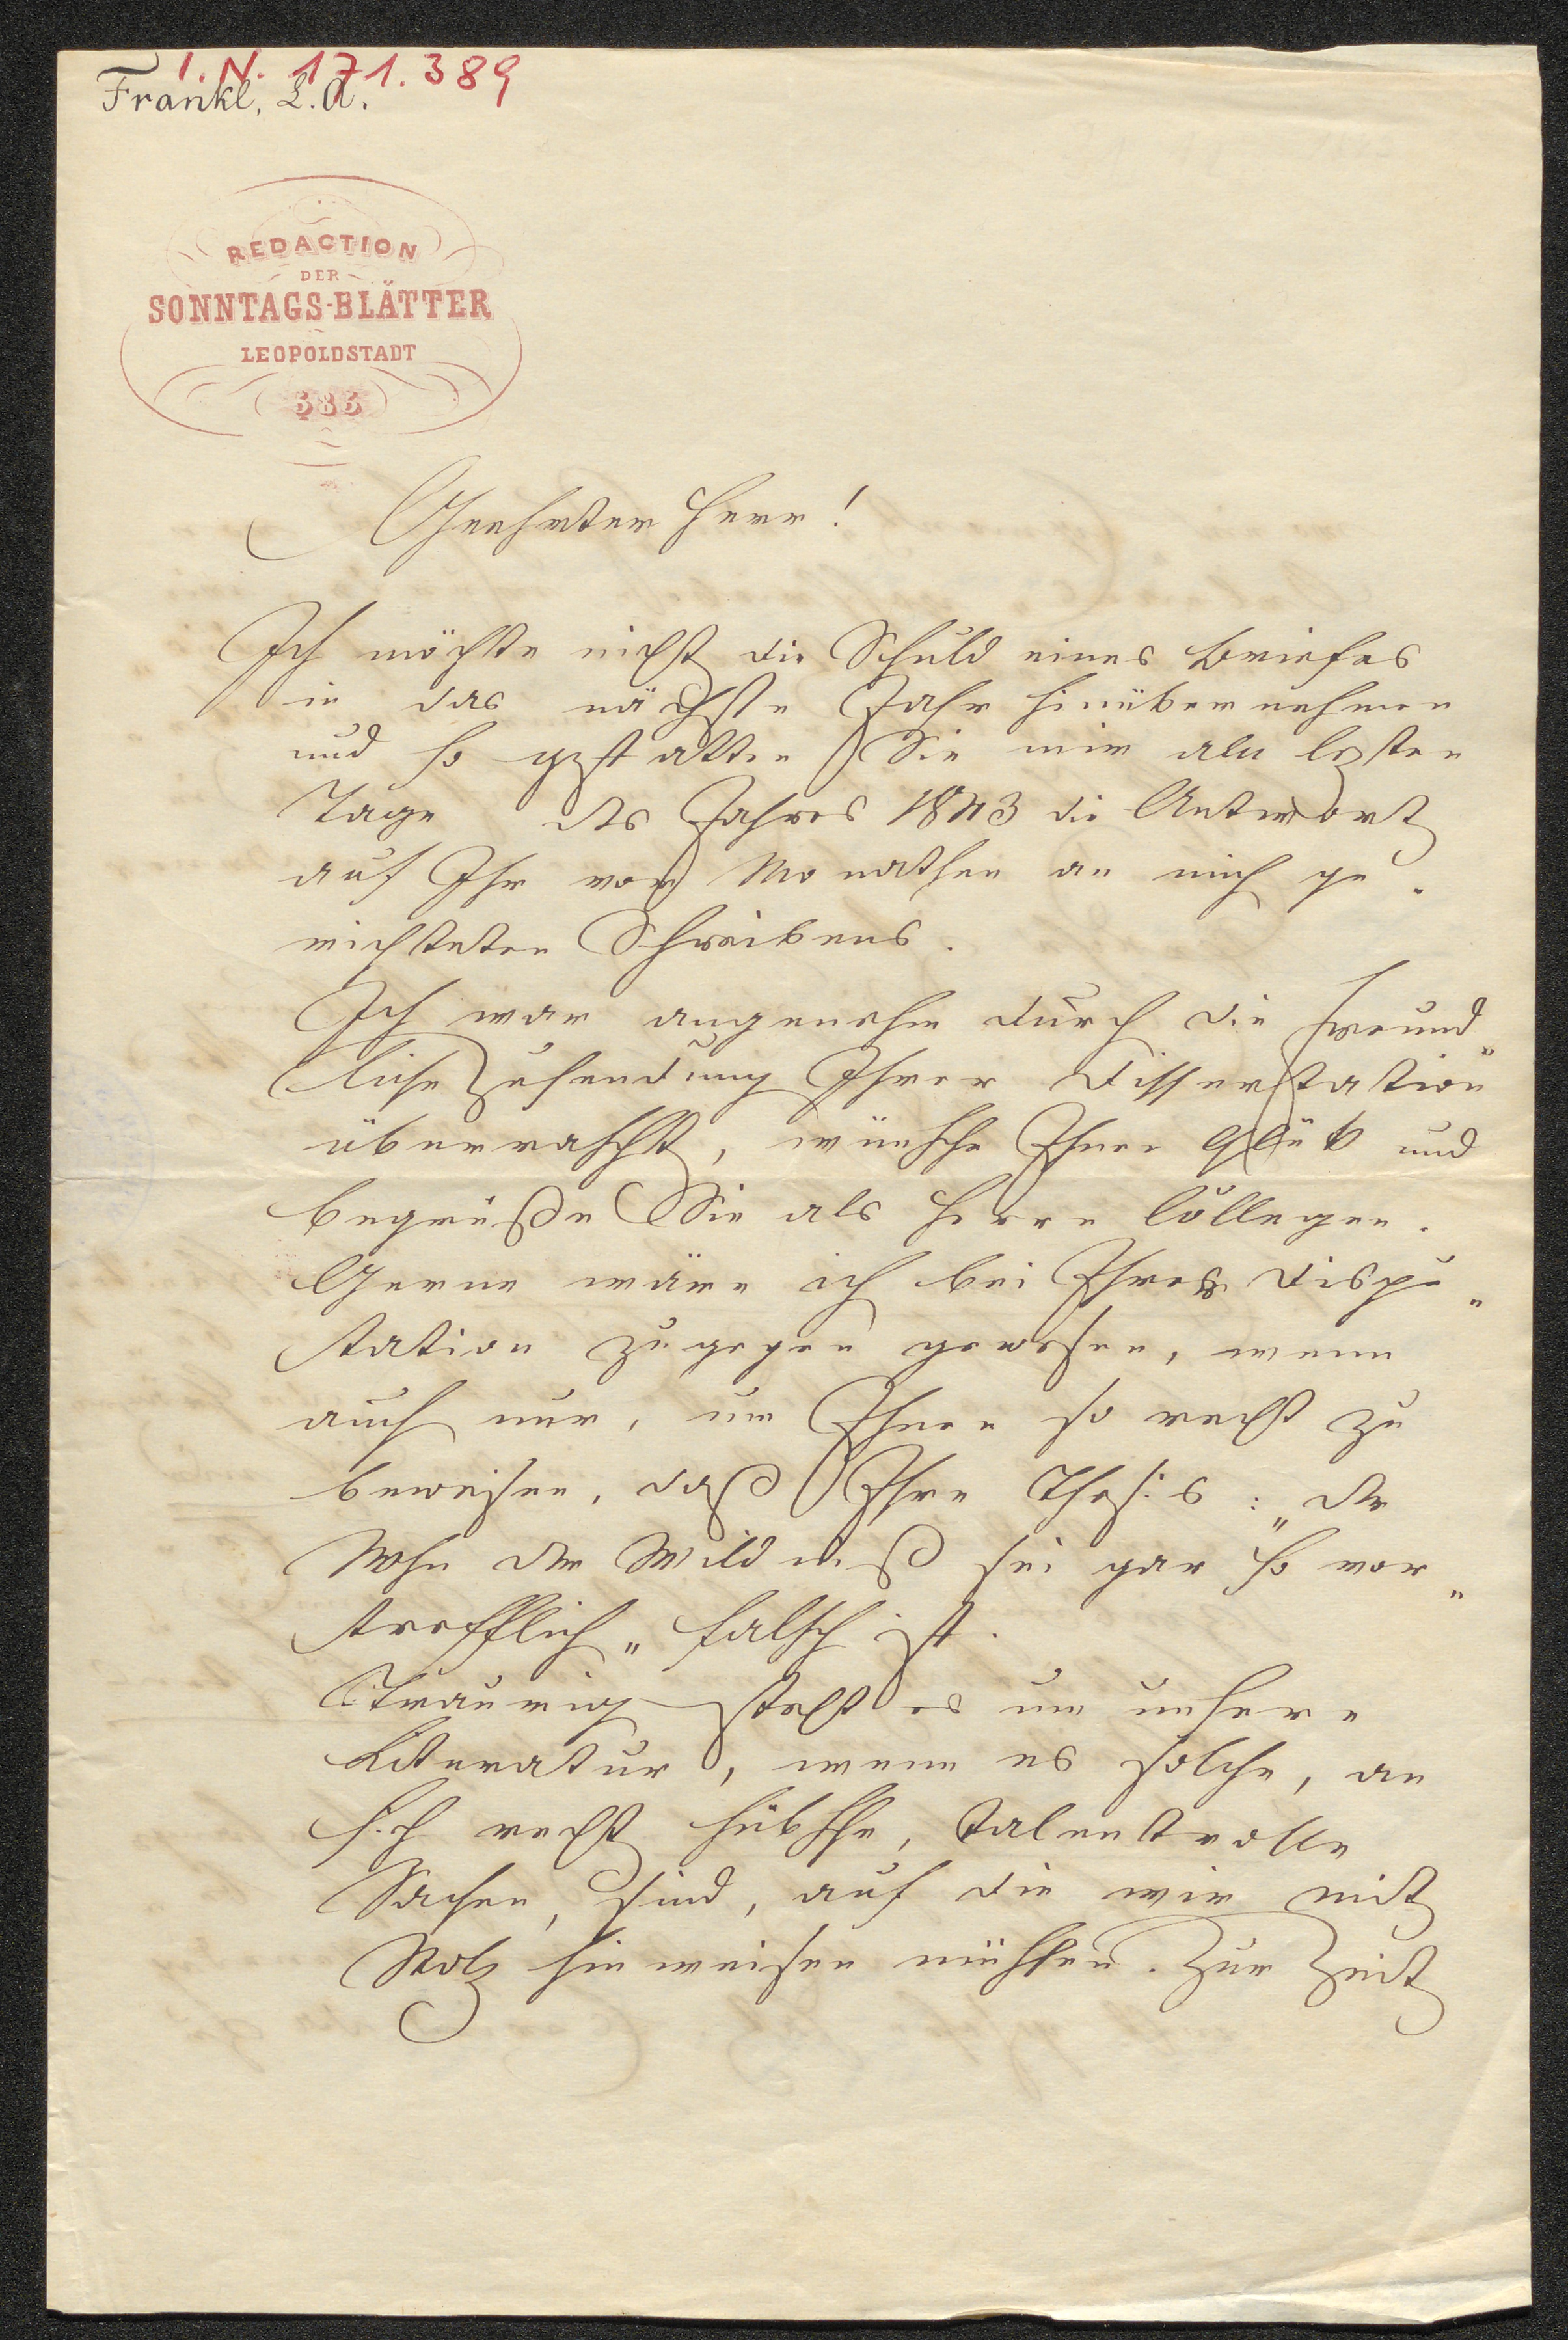 I.N. 171.389
Frankl, L.A.
REDACTION
DER
SONNTAGS-BLÄTTER
LEOPOLDSTADT
383
Geehrter Herr!
Ich möchte nicht die Schuld eines Briefes
in das nächste Jahr hinübernehmen
und so gestatten Sie mir am lezten
Tage des Jahres 1843 die Antwort
auf Ihr vor Monathen an mich ge-
richteten Schreibens.
Ich war angenehm durch die freund„
liche Zusendung Ihrer Dissertation
überrascht, wünsche Ihnen Glük und
begrüße Sie als Herrn Collegen.
Gerne wäre ich bei Ihrer Dispu„
tation zugegen gewesen, wenn
auch nur, um Ihnen so recht zu
beweisen, daß Ihre Thesis: „der
Sohn der Wildniß sei gar so vor„
trefflich„ falsch ist.
Traurig steht es um unsere
Literatur, wenn es solche, an
sich recht hübsche, talentvolle
Sachen, sind, auf die wir mit
Stolz hinweisen müssen. Zur Zeit